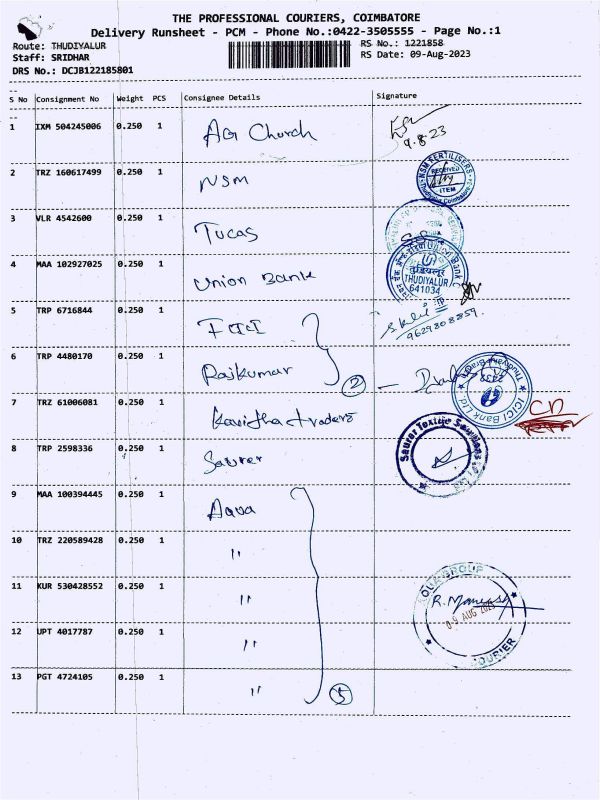 THE PROFESSIONAL COURIERS, COIMBATORE
Delivery Runsheet - PCM - Phone No.:0422-3505555 - Page No.:1
Route: THUDIYALUR
RS No.: 1221858
Staff: SRIDHAR
RS Date: 09-Aug-2023
DRS No.: DCJB122185801
S No Consignment No Weight PCS Consignee Details Signature
1 IXM 504245006 0.250 1 AG Church
9.8.23
2 TRZ 160617499 0.250 1 NSM
NSM FERTILISERS
RECEIVED
ITEM
3 VLR 4542600 0.250 1 Tucas
4 MAA 102927025 0.250 1 Union Bank
THUDIYALUR
641034
5 TRP 6716844 0.250 1
9629808859
6 TRP 4480170 0.250 1 Rajkumar
2
7 TRZ 61006081 0.250 1 Kavitha traders
ICICI Bank Ltd.
CD
8 TRP 2598336 0.250 1 Saurer
Saurer Textile Solutions
9 MAA 100394445 0.250 1 Aqua
10 TRZ 220589428 0.250 1 "
11 KUR 530428552 0.250 1 "
AQUA GROUP
R.
09 AUG 2023
COURIER
12 UPT 4017787 0.250 1 "
13 PGT 4724105 0.250 1 "
5